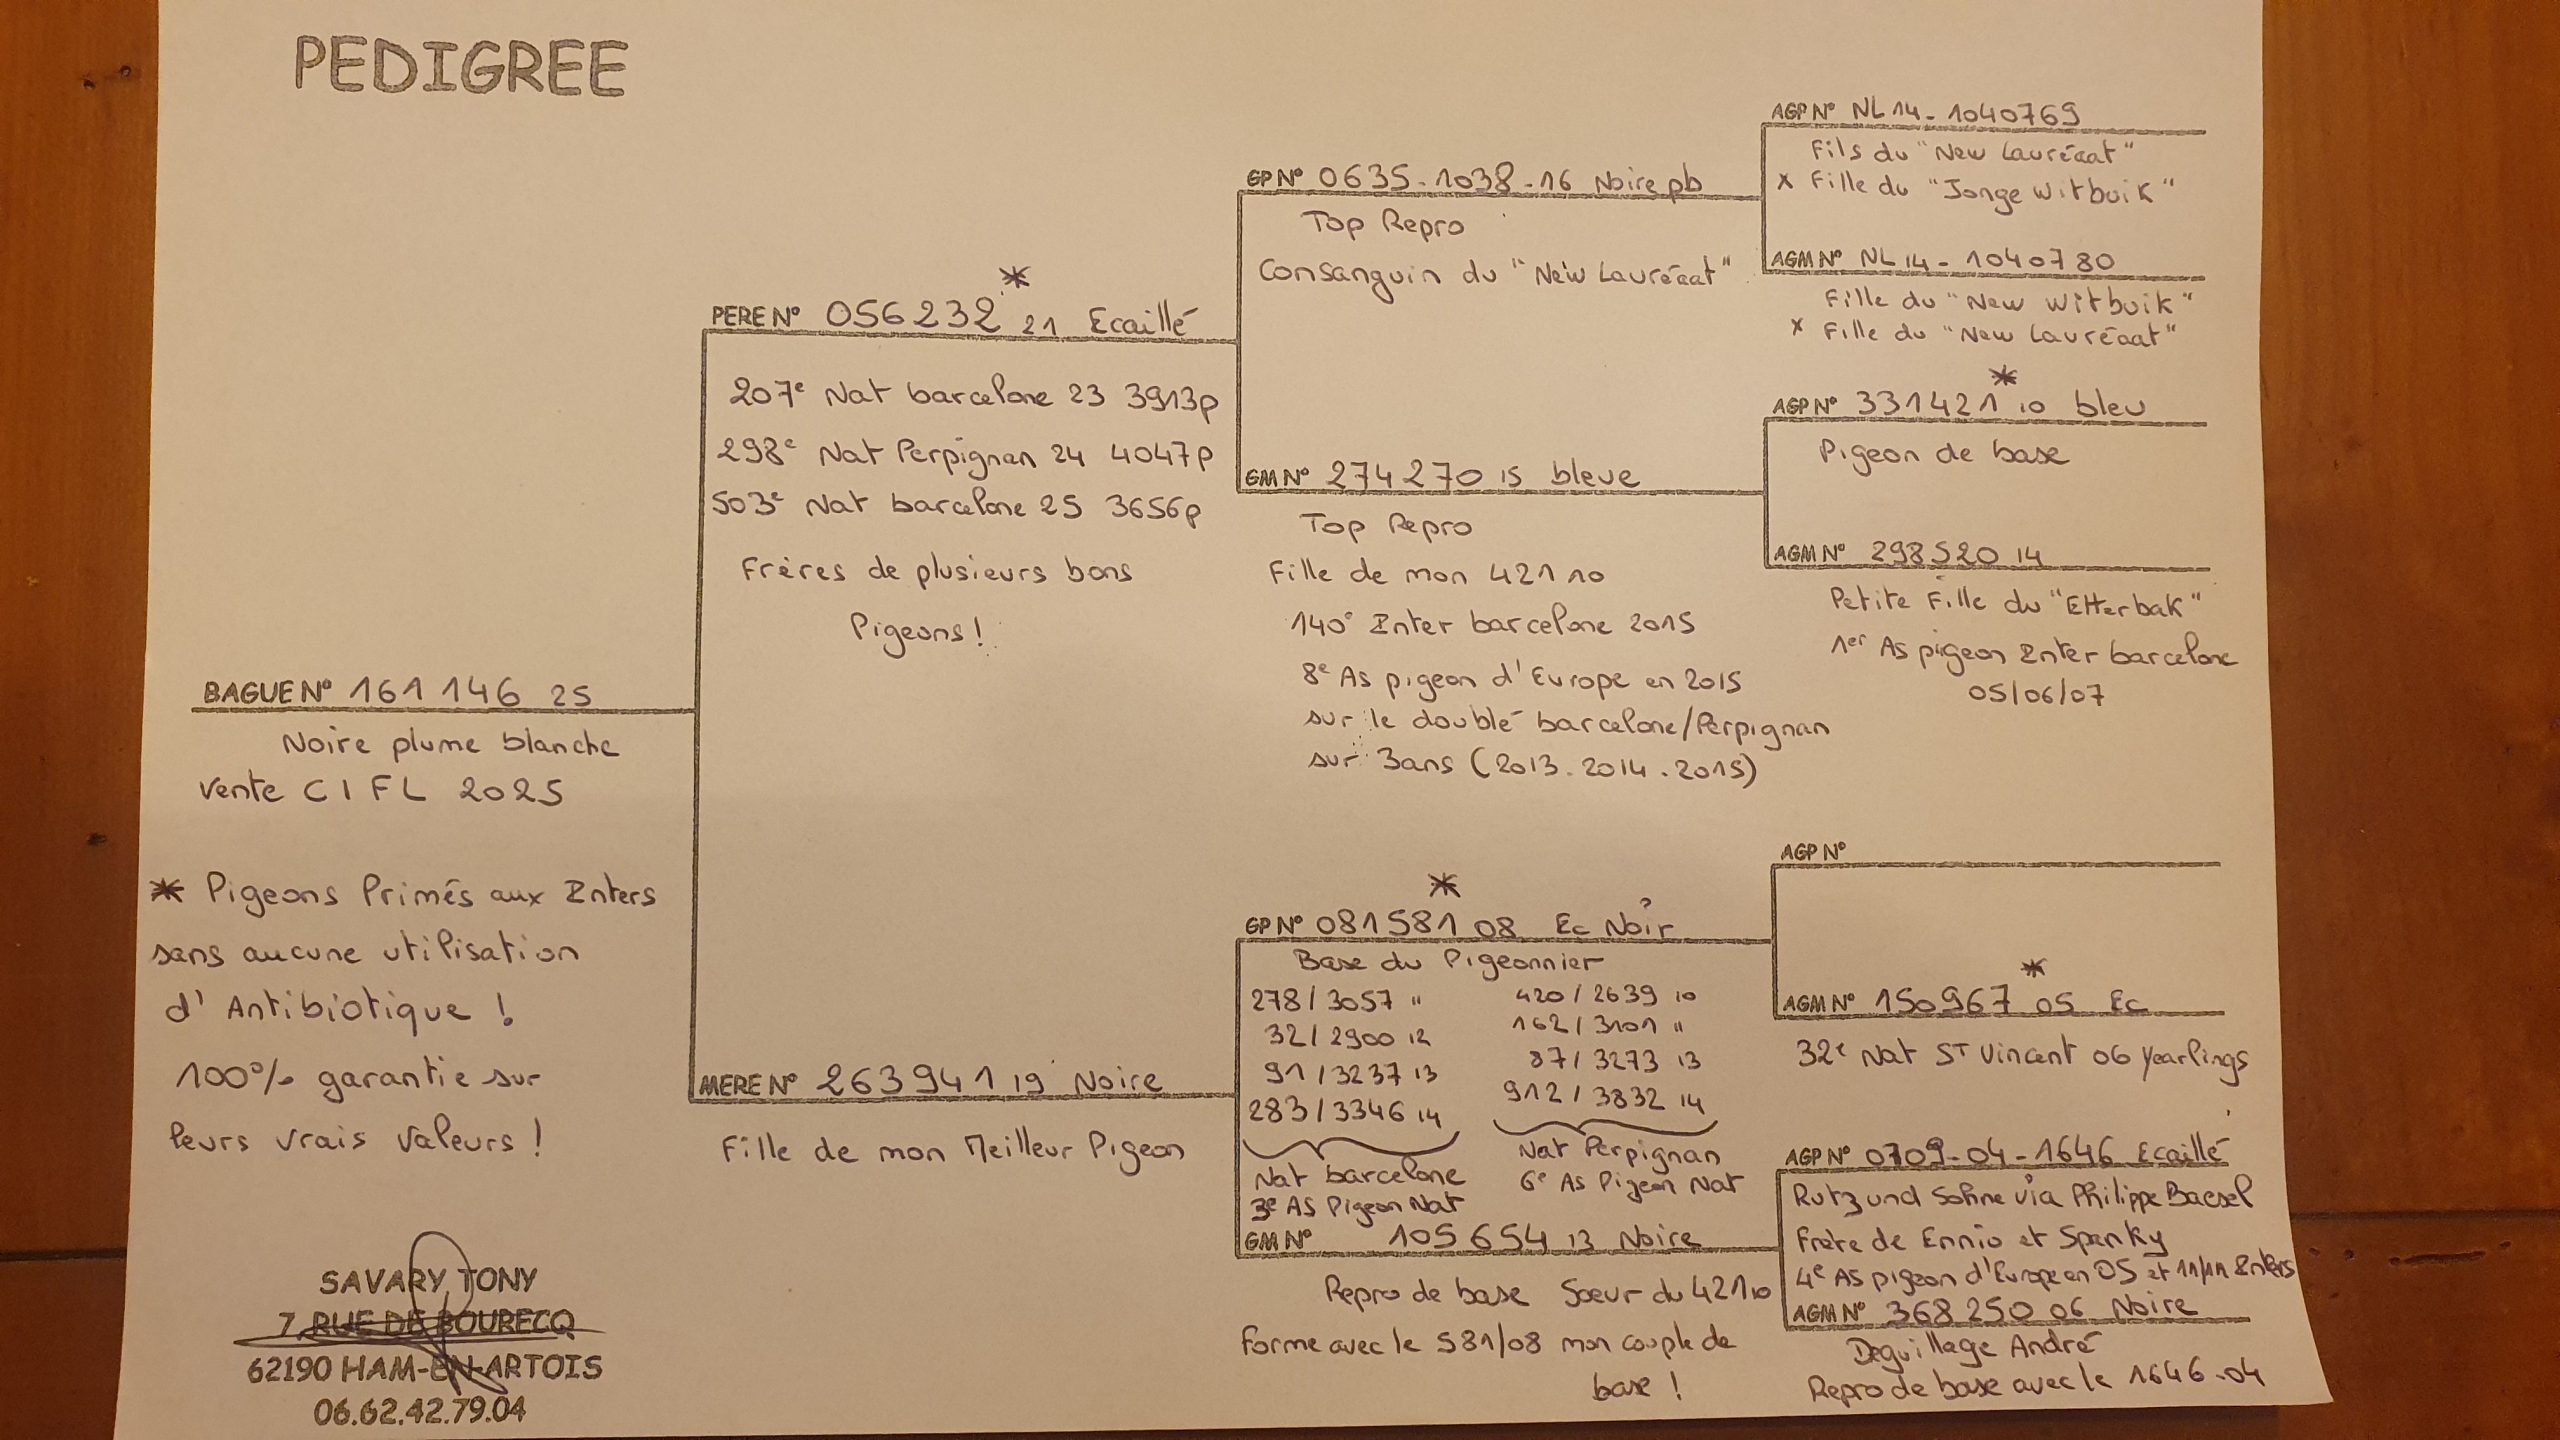 PEDIGREE
BAGUE N° 161 146 25
Noire plume blanche
Vente CIFL 2025
* Pigeons Primés aux Inters
sans aucune utilisation
d'Antibiotique !
100% garantie sur
leurs vrais Valeurs !
SAVARY TONY
7, RUE DE BOURECQ
62190 HAM-EN-ARTOIS
06.62.42.79.04
*
PERE N° 056232 21 Ecaillé
207e Nat barcelone 23 3913p
298e Nat Perpignan 24 4047p
503e Nat barcelone 25 3656p
Frères de plusieurs bons
Pigeons !
MERE N° 263941 19 Noire
Fille de mon Meilleur Pigeon
GP N° 0635-1038-16 Noire pb
Top Repro
Consanguin du "New Lauréaat"
GM N° 274270 15 bleue
Top Repro
Fille de mon 421 10
140e Inter barcelone 2015
8e As pigeon d'Europe en 2015
sur le doublé barcelone/Perpignan
sur 3ans (2013.2014.2015)
*
GP N° 081581 08 Ec Noir
Base du Pigeonnier
278/3057 " 420/2639 10
32/2900 12 162/3101 "
91/3237 13 87/3273 13
283/3346 14 912/3832 14
Nat barcelone Nat Perpignan
3e AS Pigeon Nat 6e As Pigeon Nat
GM N° 105654 13 Noire
Repro de base Soeur du 421 10
forme avec le 581/08 mon couple de
base !
AGP N° NL 14-1040769
Fils du "New Lauréaat"
x Fille du "Jonge Witbuik"
AGM N° NL 14-1040780
Fille du "New Witbuik"
x Fille du "New Lauréaat"
*
AGP N° 331421 10 bleu
Pigeon de base
AGM N° 298520 14
Petite Fille du "Etterbak"
1er As pigeon Inter barcelone
05/06/07
AGP N°
*
AGM N° 150967 05 Ec
32e Nat ST Vincent 06 Yearlings
AGP N° 0709-04-1646 Ecaillé
Rutz und Sohne via Philippe Baesel
Frère de Ennio et Spanky
4e As pigeon d'Europe en 05 et 11/11 Inters
AGM N° 368250 06 Noire
Deguillage André
Repro de base avec le 1646-04